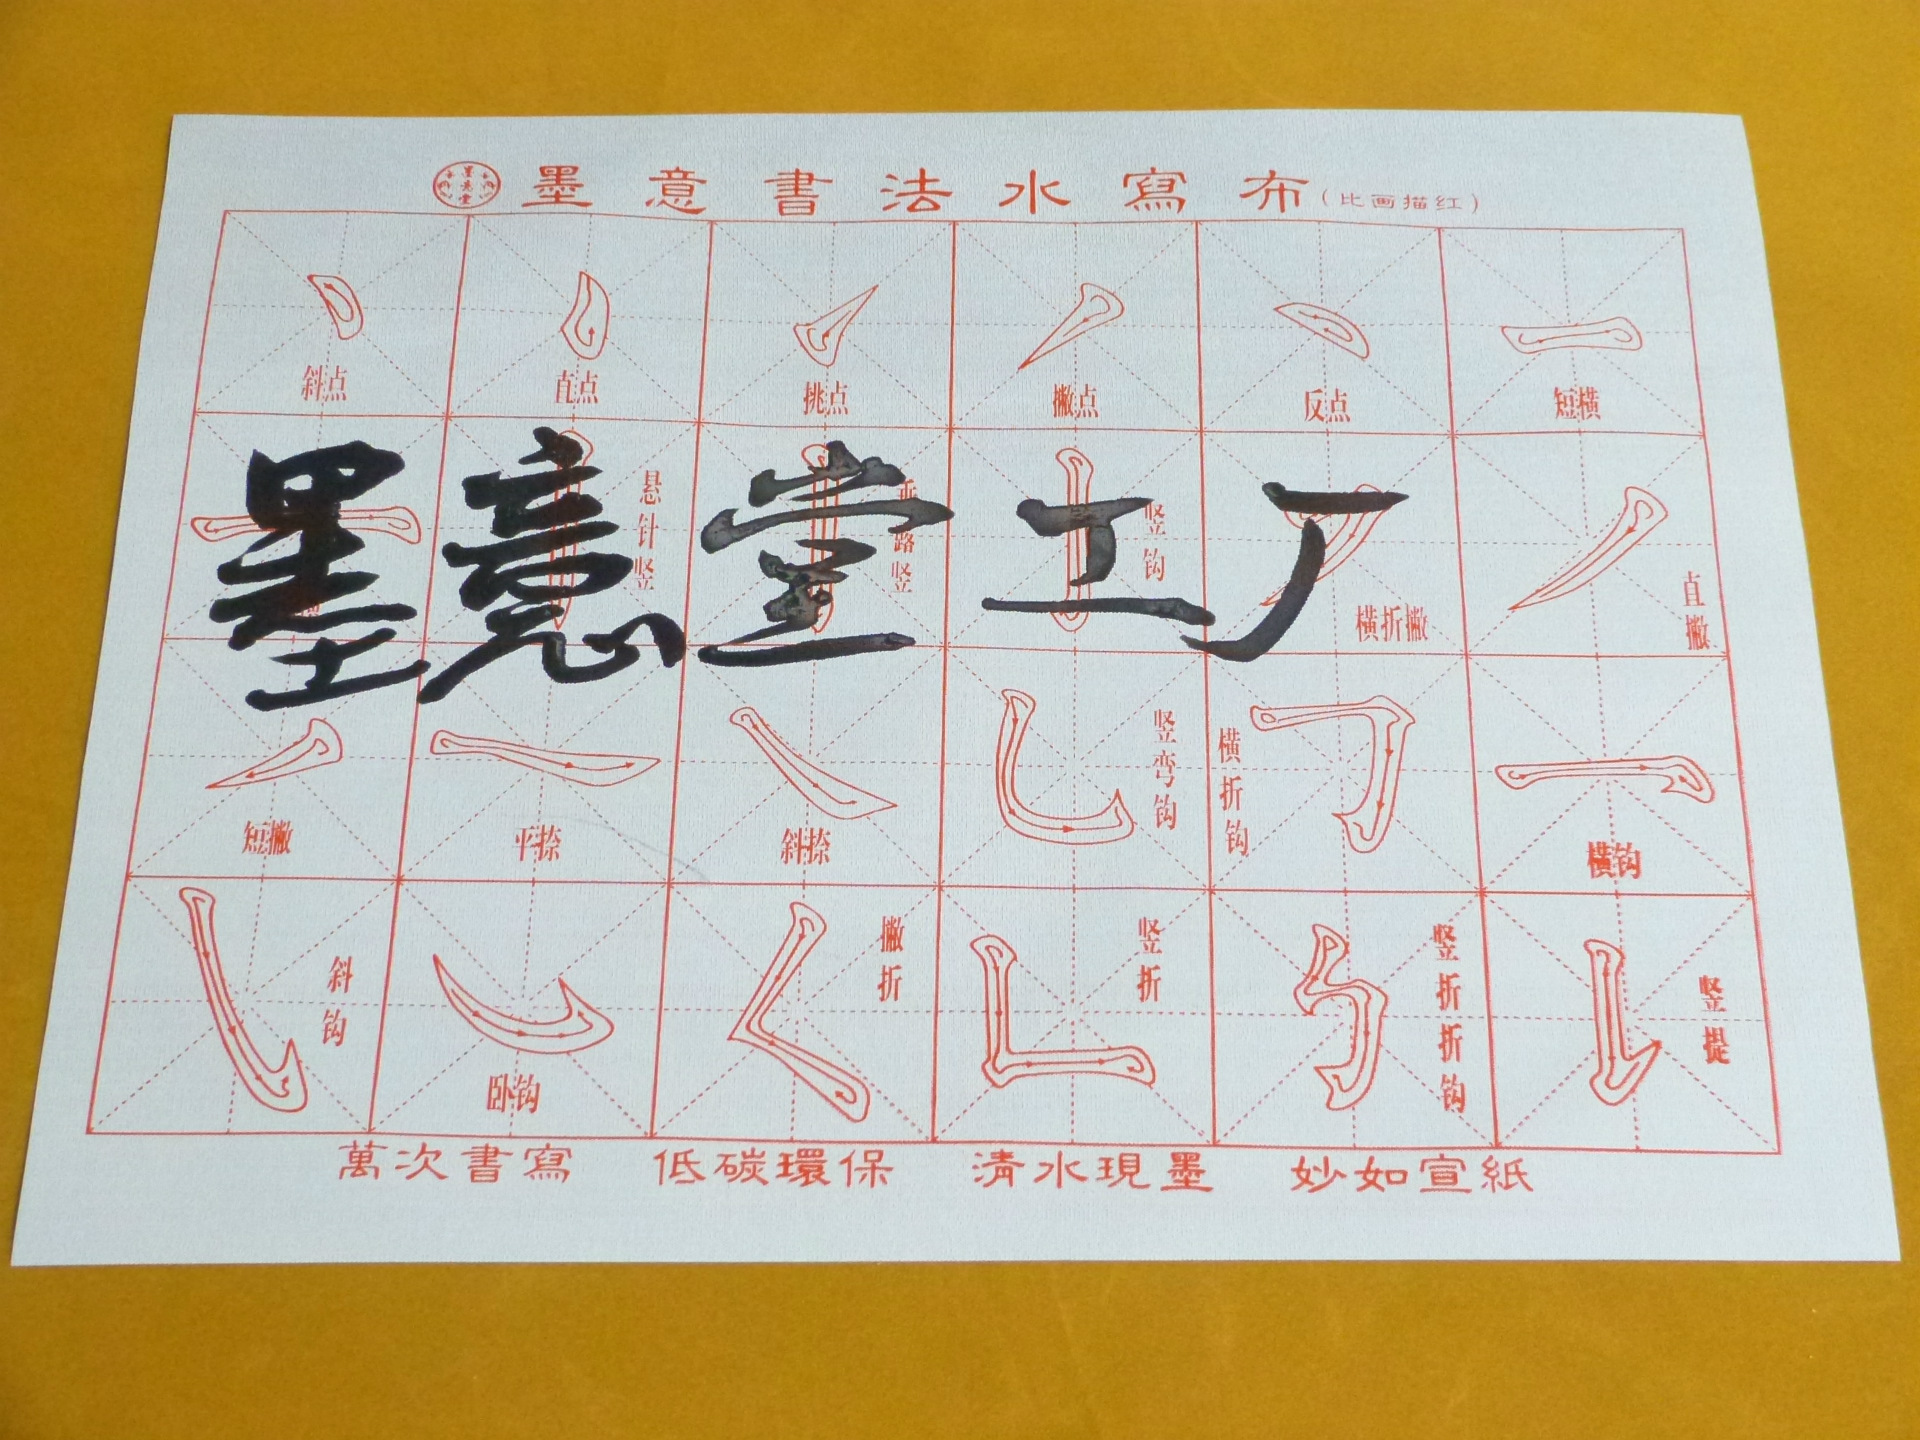 墨意堂
墨意書法水寫布(比画描红)
斜点 直点 挑点 撇点 反点 短横
墨意堂工厂
悬针竖 垂露竖 竖钩 横折撇 直撇
短撇 平捺 斜捺 竖弯钩 横折钩 横钩
斜钩 卧钩 撇折 竖折 竖折折钩 竖提
萬次書寫 低碳環保 清水現墨 妙如宣紙